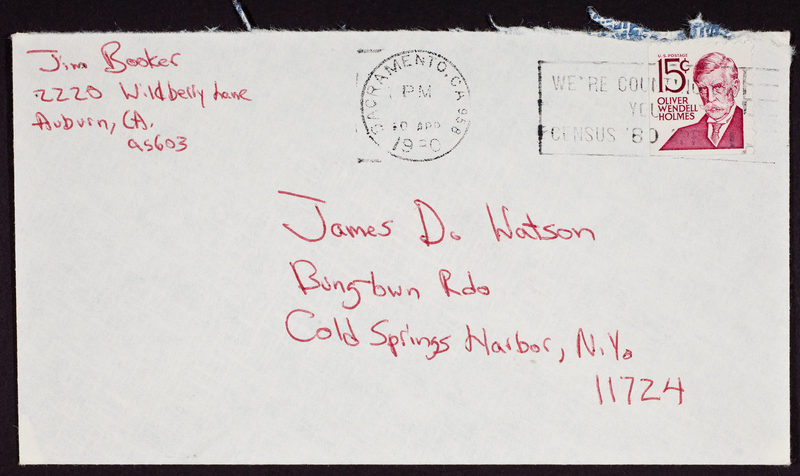 Jim Booker
2220 Wildberry Lane
Auburn, CA.
95603
SACRAMENTO, CA 958
PM
APR
WE'RE COUN
YOU
CENSUS '80
U.S. POSTAGE
15¢
OLIVER
WENDELL
HOLMES
James D. Watson
Bungtown Rd.
Cold Springs Harbor, N.Y.
11724